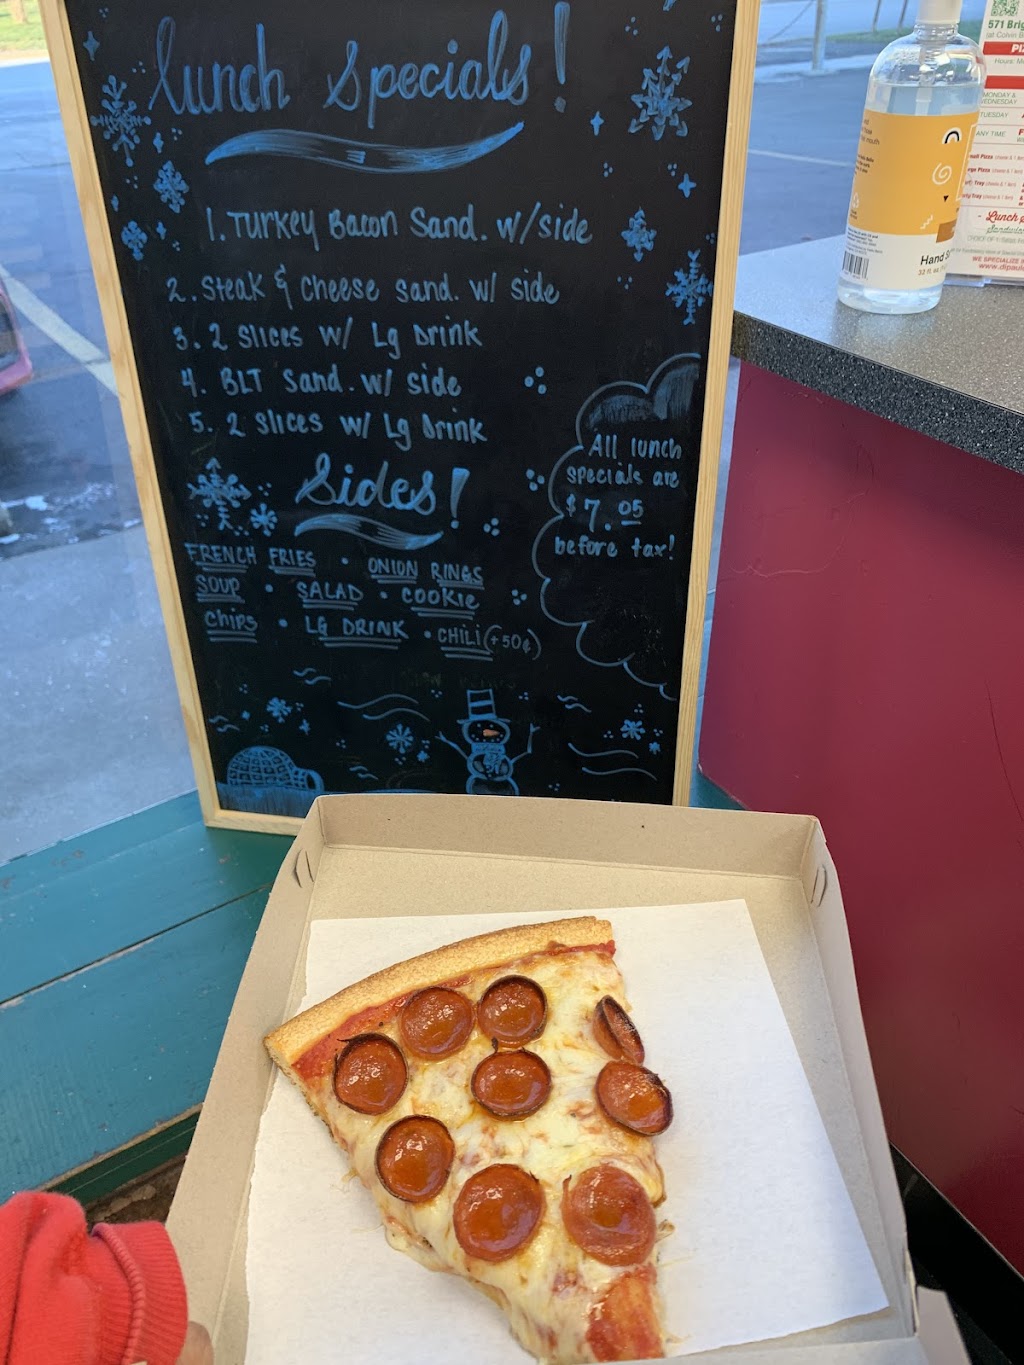 lunch specials!
1. Turkey Bacon Sand. w/side
2. Steak & Cheese Sand. w/ side
3. 2 Slices w/ Lg Drink
4. BLT Sand. w/ side
5. 2 Slices w/ Lg Drink
All lunch
specials are
$7.05
before tax!
Sides!
FRENCH FRIES • ONION RINGS
SOUP • SALAD • COOKIE
CHIPS • LG DRINK • CHILI (+50¢)
Hand
32 fl oz
571
MONDAY &
TUESDAY
ANY TIME
Lunch
WE SPECIALIZE